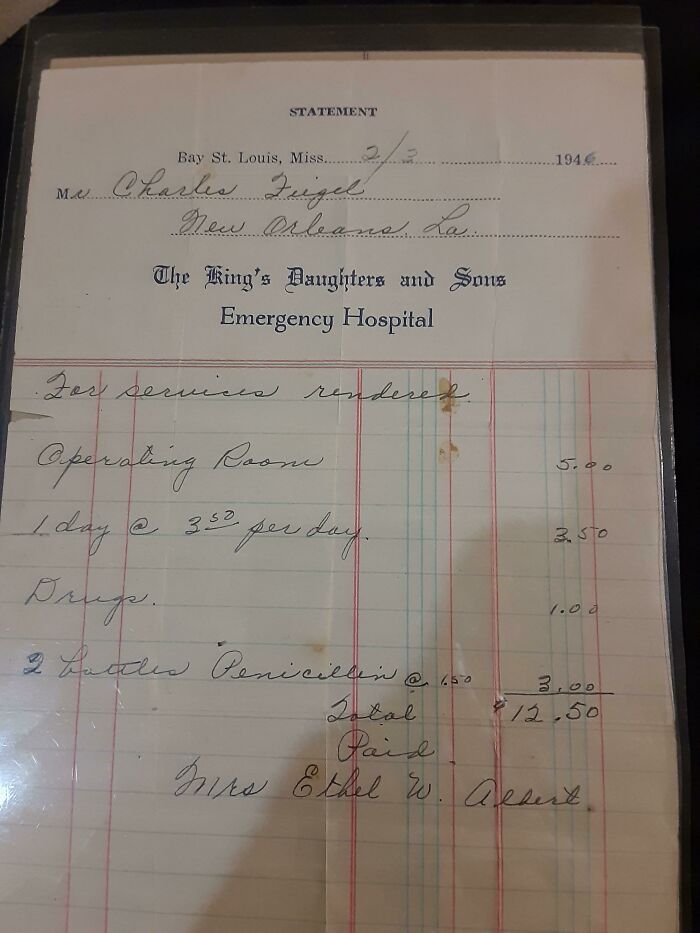 STATEMENT
Bay St. Louis, Miss. 2/3 1946
Mr Charles Fiegel
New Orleans, La.
The King's Daughters and Sons
Emergency Hospital
For services rendered.
Operating Room 5.00
1 day @ 3 50 per day. 3.50
Drugs. 1.00
2 bottles Penicillin @ 1.50 3.00
Total $12.50
Paid
Mrs Ethel W. Albert.